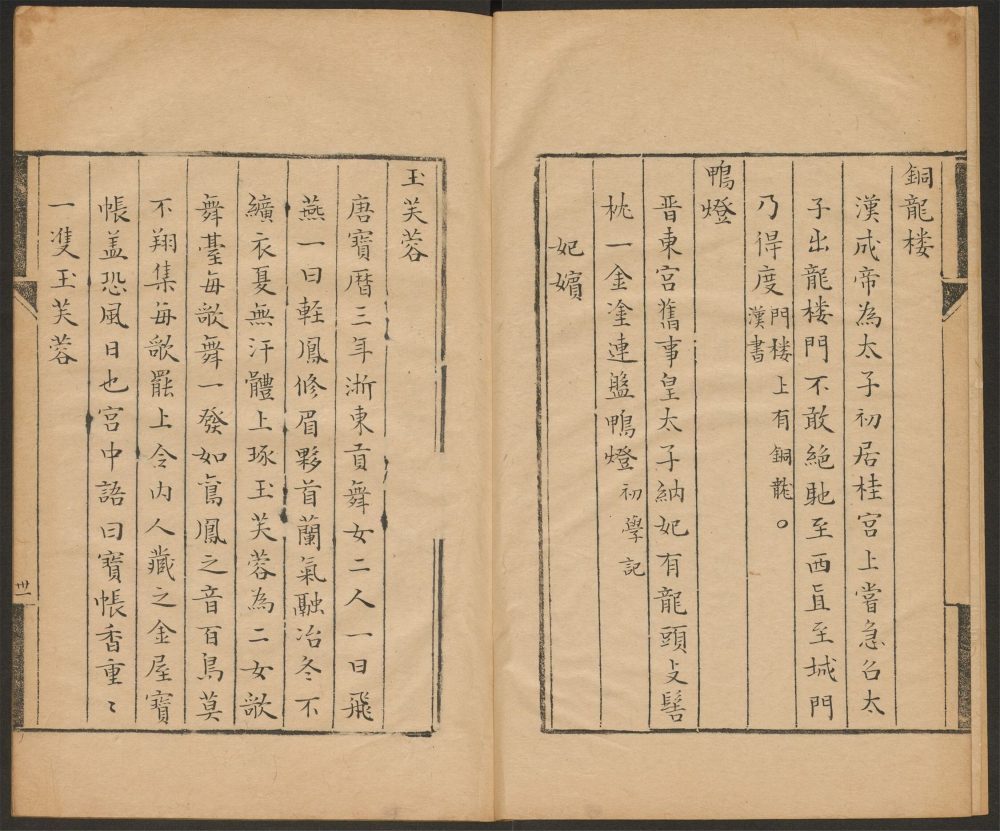 銅龍楼
漢成帝為太子初居桂宮上嘗急召太
子出龍楼門不敢絶馳至西直至城門
乃得度門楼上有銅龍。漢書
鴨燈
晋東宮舊事皇太子納妃有龍頭支髻
枕一金塗連盤鴨燈初學記
妃嬪
玉芙蓉
唐寶暦三年浙東貢舞女二人一曰飛
燕一曰軽鳳修眉夥首蘭氣融冶冬不
纊衣夏無汗體上琢玉芙蓉為二女歌
舞臺每歌舞一發如鸞鳳之音百鳥莫
不翔集每歌罷上令内人藏之金屋寶
帳盖恐風日也宮中語曰寶帳香重〻
一隻玉芙蓉
卅一